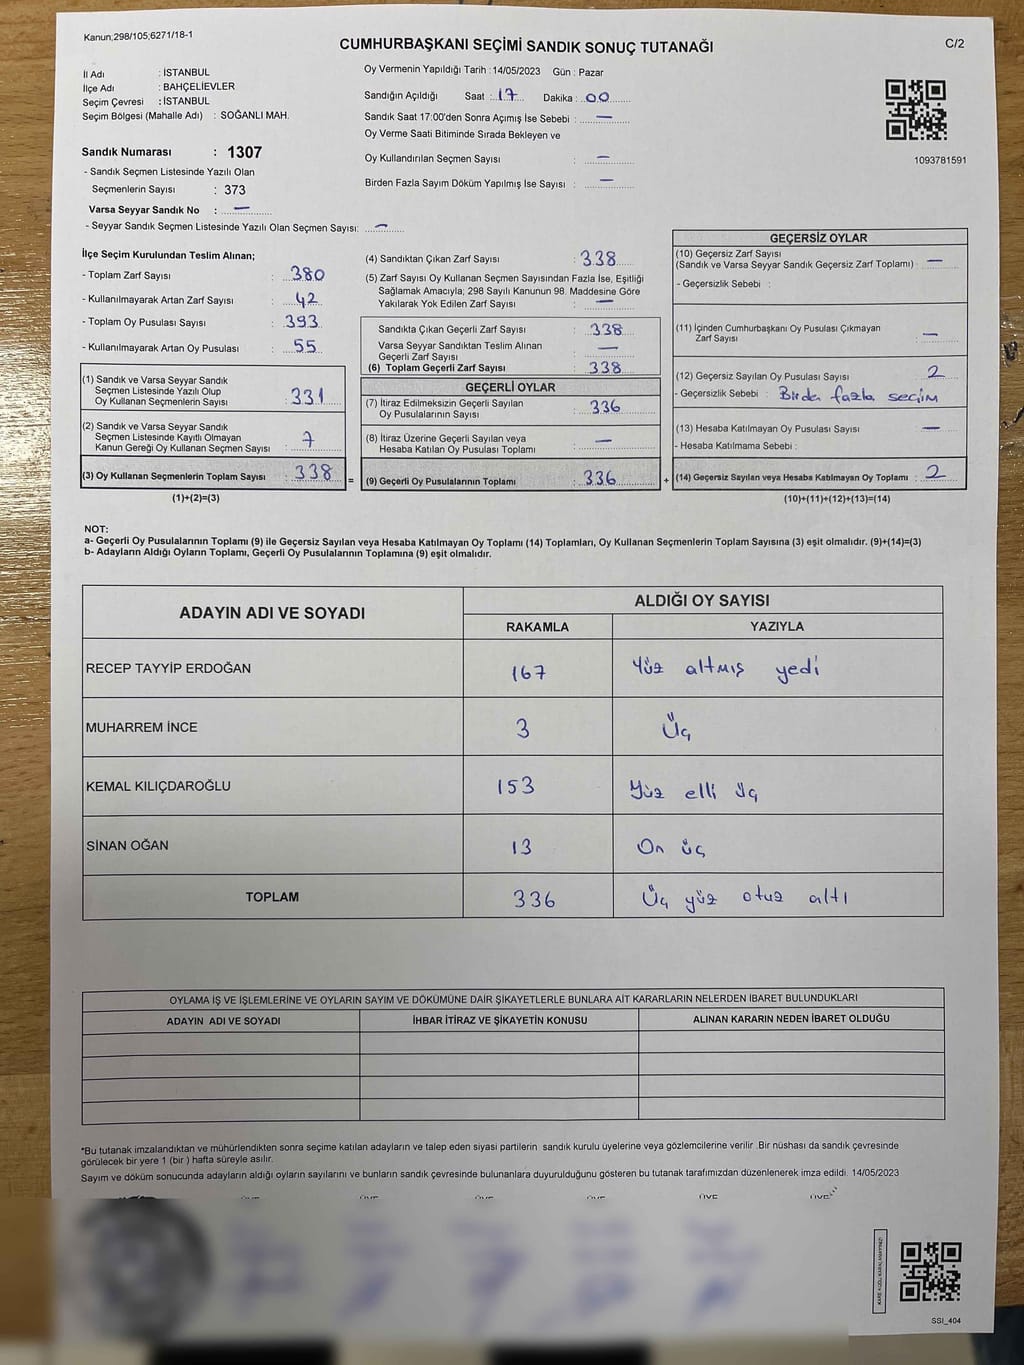 Kanun;298/105;6271/18-1
CUMHURBAŞKANI SEÇİMİ SANDIK SONUÇ TUTANAĞI
C/2
İl Adı : İSTANBUL
İlçe Adı : BAHÇELİEVLER
Seçim Çevresi : İSTANBUL
Seçim Bölgesi (Mahalle Adı) : SOĞANLI MAH.
Sandık Numarası : 1307
- Sandık Seçmen Listesinde Yazılı Olan
Seçmenlerin Sayısı : 373
Varsa Seyyar Sandık No : —
- Seyyar Sandık Seçmen Listesinde Yazılı Olan Seçmen Sayısı: —
Oy Vermenin Yapıldığı Tarih : 14/05/2023 Gün : Pazar
Sandığın Açıldığı Saat : 17 Dakika : 00
Sandık Saat 17:00'den Sonra Açımış İse Sebebi : —
Oy Verme Saati Bitiminde Sırada Bekleyen ve
Oy Kullandırılan Seçmen Sayısı : —
Birden Fazla Sayım Döküm Yapılmış İse Sayısı : —
1093781591
İlçe Seçim Kurulundan Teslim Alınan;
- Toplam Zarf Sayısı : 380
- Kullanılmayarak Artan Zarf Sayısı : 42
- Toplam Oy Pusulası Sayısı : 393
- Kullanılmayarak Artan Oy Pusulası : 55
(1) Sandık ve Varsa Seyyar Sandık
Seçmen Listesinde Yazılı Olup
Oy Kullanan Seçmenlerin Sayısı : 331
(2) Sandık ve Varsa Seyyar Sandık
Seçmen Listesinde Kayıtlı Olmayan
Kanun Gereği Oy Kullanan Seçmen Sayısı : 7
(3) Oy Kullanan Seçmenlerin Toplam Sayısı : 338
(1)+(2)=(3)
=
(4) Sandıktan Çıkan Zarf Sayısı : 338
(5) Zarf Sayısı Oy Kullanan Seçmen Sayısından Fazla İse, Eşitliği
Sağlamak Amacıyla, 298 Sayılı Kanunun 98. Maddesine Göre
Yakılarak Yok Edilen Zarf Sayısı : —
Sandıkta Çıkan Geçerli Zarf Sayısı : 338
Varsa Seyyar Sandıktan Teslim Alınan
Geçerli Zarf Sayısı : —
(6) Toplam Geçerli Zarf Sayısı : 338
GEÇERLİ OYLAR
(7) İtiraz Edilmeksizin Geçerli Sayılan
Oy Pusulalarının Sayısı : 336
(8) İtiraz Üzerine Geçerli Sayılan veya
Hesaba Katılan Oy Pusulası Toplamı : —
(9) Geçerli Oy Pusulalarının Toplamı : 336
+
GEÇERSİZ OYLAR
(10) Geçersiz Zarf Sayısı
(Sandık ve Varsa Seyyar Sandık Geçersiz Zarf Toplamı) : —
- Geçersizlik Sebebi :
(11) İçinden Cumhurbaşkanı Oy Pusulası Çıkmayan
Zarf Sayısı : —
(12) Geçersiz Sayılan Oy Pusulası Sayısı : 2
- Geçersizlik Sebebi : Birden fazla seçim
(13) Hesaba Katılmayan Oy Pusulası Sayısı : —
- Hesaba Katılmama Sebebi :
(14) Geçersiz Sayılan veya Hesaba Katılmayan Oy Toplamı : 2
(10)+(11)+(12)+(13)=(14)
NOT:
a- Geçerli Oy Pusulalarının Toplamı (9) ile Geçersiz Sayılan veya Hesaba Katılmayan Oy Toplamı (14) Toplamları, Oy Kullanan Seçmenlerin Toplam Sayısına (3) eşit olmalıdır. (9)+(14)=(3)
b- Adayların Aldığı Oyların Toplamı, Geçerli Oy Pusulalarının Toplamına (9) eşit olmalıdır.
ADAYIN ADI VE SOYADI ALDIĞI OY SAYISI
RAKAMLA YAZIYLA
RECEP TAYYİP ERDOĞAN 167 Yüz altmış yedi
MUHARREM İNCE 3 Üç
KEMAL KILIÇDAROĞLU 153 Yüz elli üç
SİNAN OĞAN 13 On üç
TOPLAM 336 Üç yüz otuz altı
OYLAMA İŞ VE İŞLEMLERİNE VE OYLARIN SAYIM VE DÖKÜMÜNE DAİR ŞİKAYETLERLE BUNLARA AİT KARARLARIN NELERDEN İBARET BULUNDUKLARI
ADAYIN ADI VE SOYADI İHBAR İTİRAZ VE ŞİKAYETİN KONUSU ALINAN KARARIN NEDEN İBARET OLDUĞU
*Bu tutanak imzalandıktan ve mühürlendikten sonra seçime katılan adayların ve talep eden siyasi partilerin sandık kurulu üyelerine veya gözlemcilerine verilir .Bir nüshası da sandık çevresinde
görülecek bir yere 1 (bir ) hafta süreyle asılır.
Sayım ve döküm sonucunda adayların aldığı oyların sayılarını ve bunların sandık çevresinde bulunanlara duyurulduğunu gösteren bu tutanak tarafımızdan düzenlenerek imza edildi. 14/05/2023
KARE KODU KARALAMAYINIZ!
SSI_404